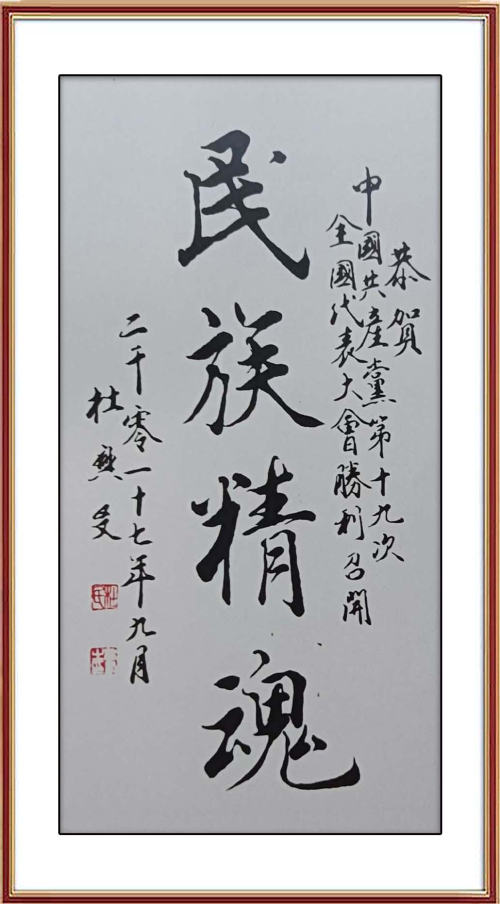 恭賀
中國共產黨第十九次
全國代表大會勝利召開
民族精魂
二千零一十七年九月
杜